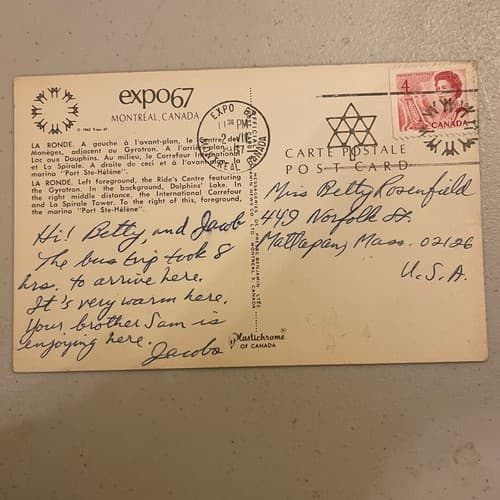 expo67
MONTRÉAL, CANADA
LA RONDE. A gauche à l'avant-plan, le centre des
Manèges, adjacent au Gyrotron. A l'arrière-plan, le
Loc aux Dauphins. Au milieu, le Carrefour International
et La Spirale. A droite de ceci et à l'avant-plan, la
marina "Port Ste-Hélène".
LA RONDE. Left foreground, the Ride's Centre featuring
the Gyrotron. In the background, Dolphins' Lake. In
the right middle distance, the International Carrefour
and La Spirale Tower. To the right of this, foreground,
the marina "Port Ste-Hélène".
Hi! Betty, and Jacob
The bus trip took 8
hrs. to arrive here.
It's very warm here.
Your brother Sam is
enjoying here.
Jacobs
Plastichrome
OF CANADA
EXPO
PM
2
VIII
67
CANADA
4
CANADA
CARTE POSTALE
POST CARD
Miss Betty Rosenfield
449 Norfolk St.
Mattapan, Mass. 02126
U.S.A.